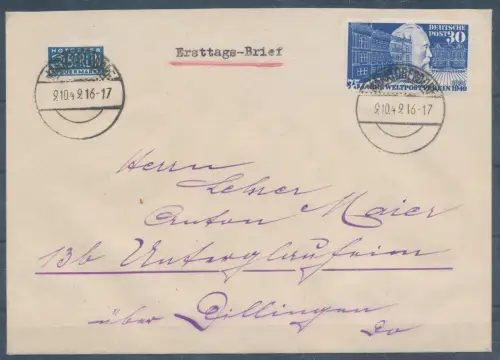 NOTOPFER
BERLIN
STEUERMARKE
Ersttags-Brief
DEUTSCHE
POST 30
75 JAHRE WELTPOSTVEREIN 1949
9.10.49.16-17
9.10.49.16-17
Herrn
Lehrer
Anton Maier
13b Unterglauheim
über Dillingen
Do